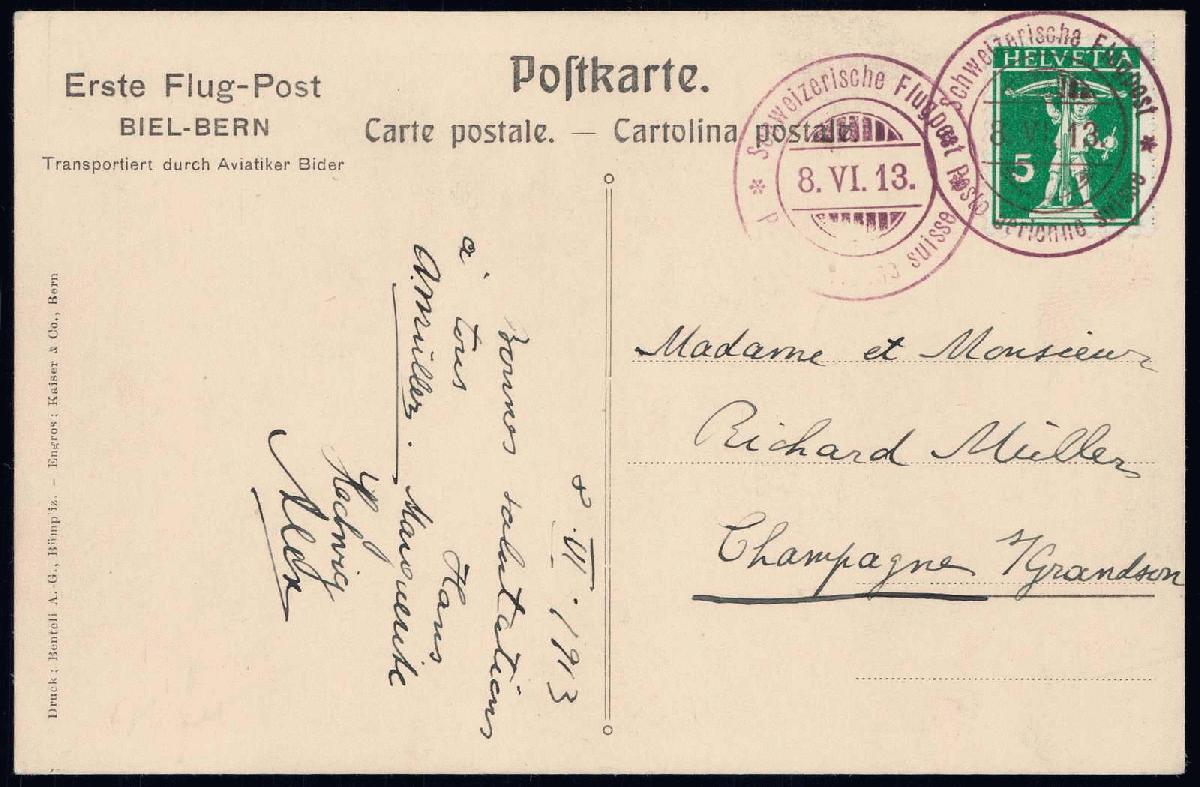 Erste Flug-Post
BIEL-BERN
Transportiert durch Aviatiker Bider
Postkarte.
Carte postale. — Cartolina postale.
Schweizerische Flugpost
8. VI. 13.
suisse
Schweizerische Flugpost
8. VI. 13.
Poste aérienne suisse
HELVETIA
5
Madame et Monsieur
Richard Müller
Champagne s/Grandson
8. VI. 1913
Bonnes salutations
à tous Hans
A. Müller. Marguerite
Hedwig
Druck: Benteli A.G., Bümpliz. – Engros: Kaiser & Co., Bern